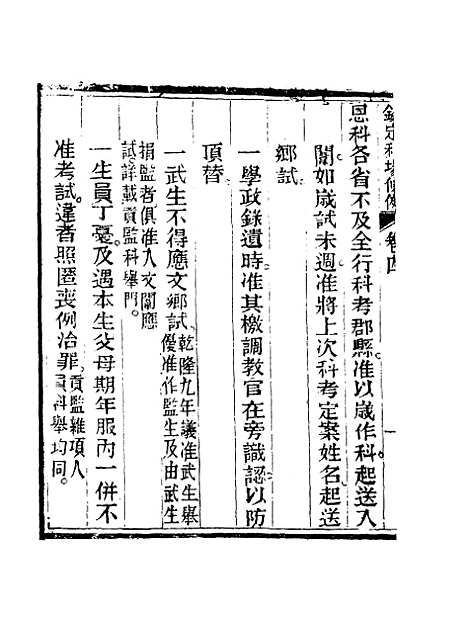 欽定科場條例 卷四 一
恩科各省不及全行科考郡縣准以歲作科起送入
闈如歲試未週准將上次科考定案姓名起送
鄉試
一學政錄遺時准其檄調教官在旁識認以防
頂替
一武生不得應文鄉試乾隆九年議准武生舉
優准作監生及由武生
捐監者俱准入文闈應
試詳載貢監科舉門。
一生員丁憂及遇本生父母期年服內一併不
准考試違者照匿喪例治罪貢監雜項人
員科舉均同。